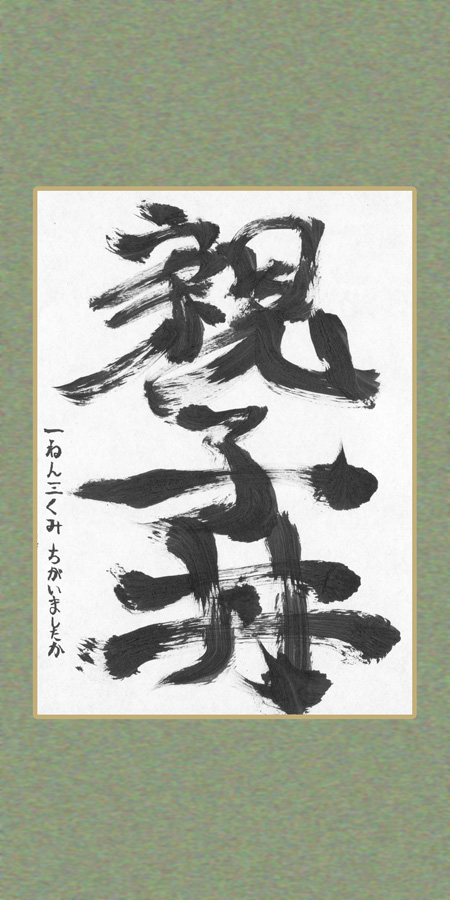 親子丼
一ねん三くみ ちがいましたか